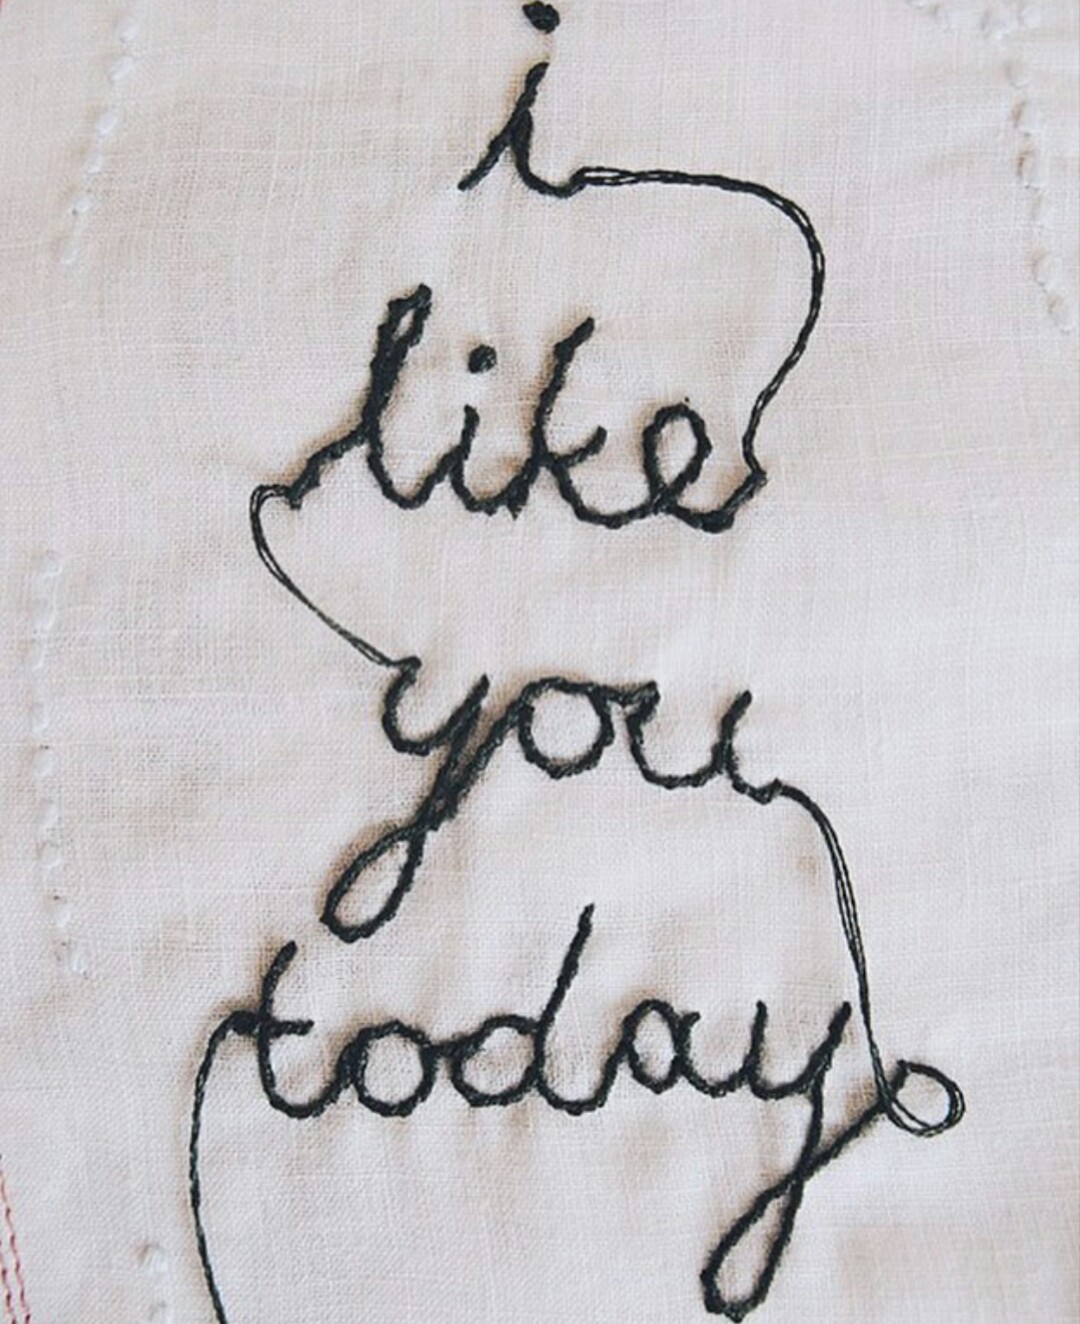 i
like
you
today